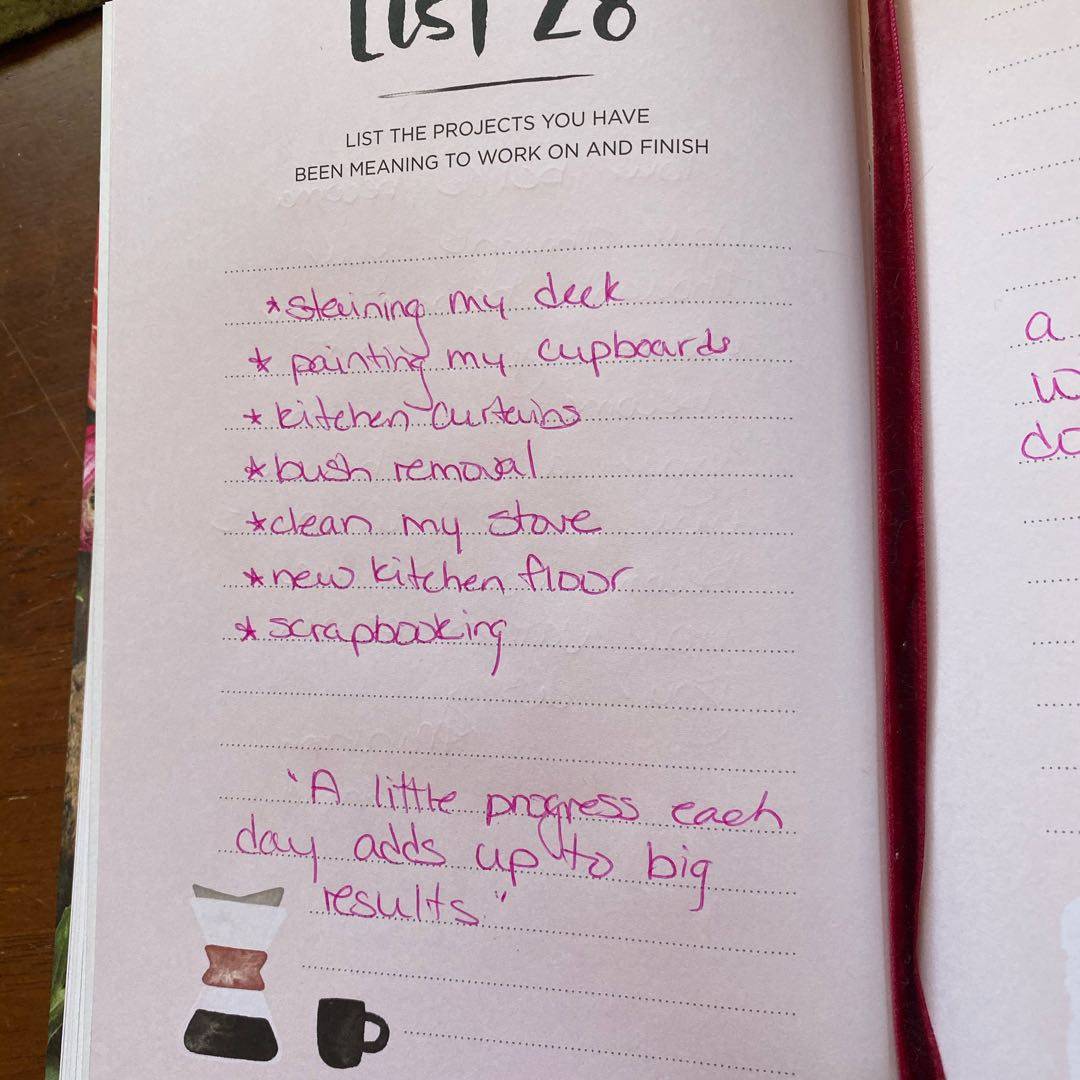 List 28
LIST THE PROJECTS YOU HAVE
BEEN MEANING TO WORK ON AND FINISH
*staining my deck
* painting my cupboards
*kitchen curtains
*bush removal
*clean my stove
*new kitchen floor
*scrapbooking
"A little progress each
day adds up to big
results."
a
do